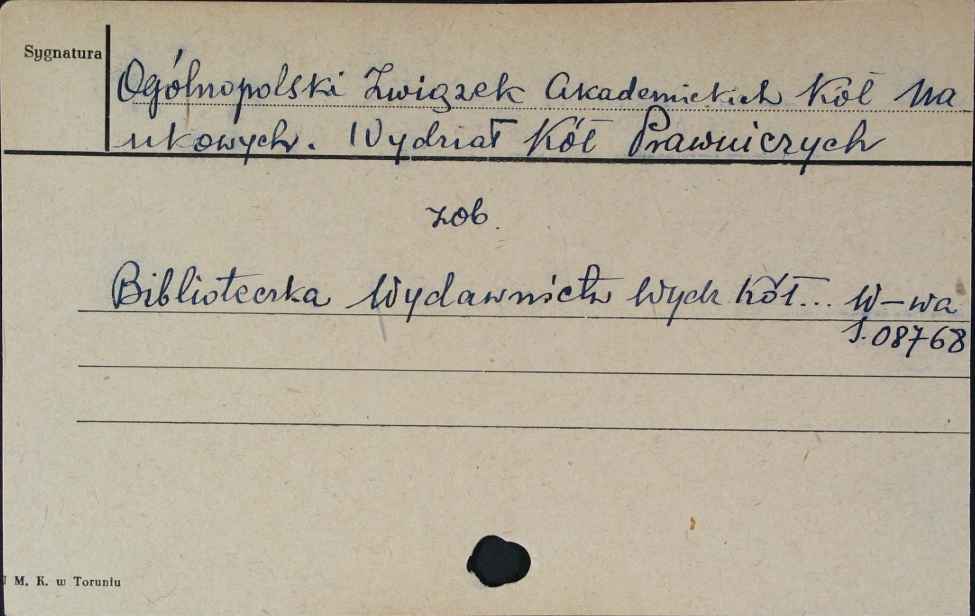 Sygnatura
Ogólnopolski Związek Akademickich Kół Na
ukowych. Wydział Kół Prawniczych
zob.
Biblioteczka Wydawnictw Wydz. Kół... W-wa
S.08768
M. K. w Toruniu